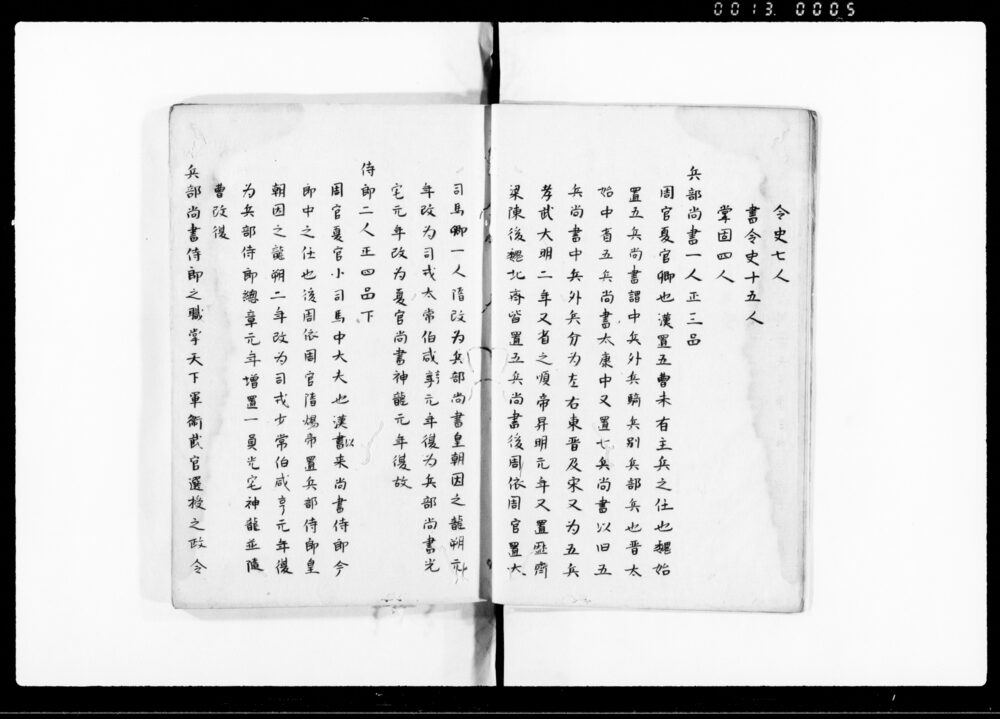 0013 0005
令史七人
書令史十五人
掌固四人
兵部尚書一人正三品
周官夏官卿也漢置五曹未有主兵之仕也魏始
置五兵尚書謂中兵外兵騎兵別兵部兵也晋太
始中省五兵尚書太康中又置七兵尚書以旧五
兵尚書中兵外兵分为左右東晋及宋又为五兵
孝武大明二年又省之順帝昇明元年又置歷齊
梁陳後魏北齊皆置五兵尚書後周依周官置大
司馬卿一人隋改为兵部尚書皇朝因之龍朔元
年改为司戎太常伯咸亨元年復为兵部尚書光
宅元年改为夏官尚書神龍元年復故
侍郎二人正四品下
周官夏官小司馬中大夫也漢書以来尚書侍郎今
郎中之仕也後周依周官隋煬帝置兵部侍郎皇
朝因之龍朔二年改为司戎少常伯咸亨元年復
为兵部侍郎總章元年增置一員光宅神龍並隨
曹改復
兵部尚書侍郎之職掌天下軍衛武官選授之政令